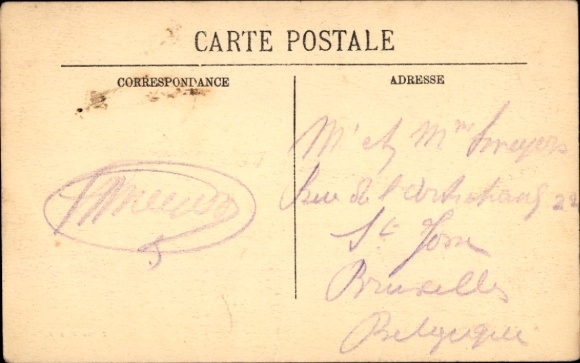 CARTE POSTALE
CORRESPONDANCE
ADRESSE
Mr et Mme Smeyers
Rue de l'Artichaut 22
St Josse
Bruxelles
Belgique